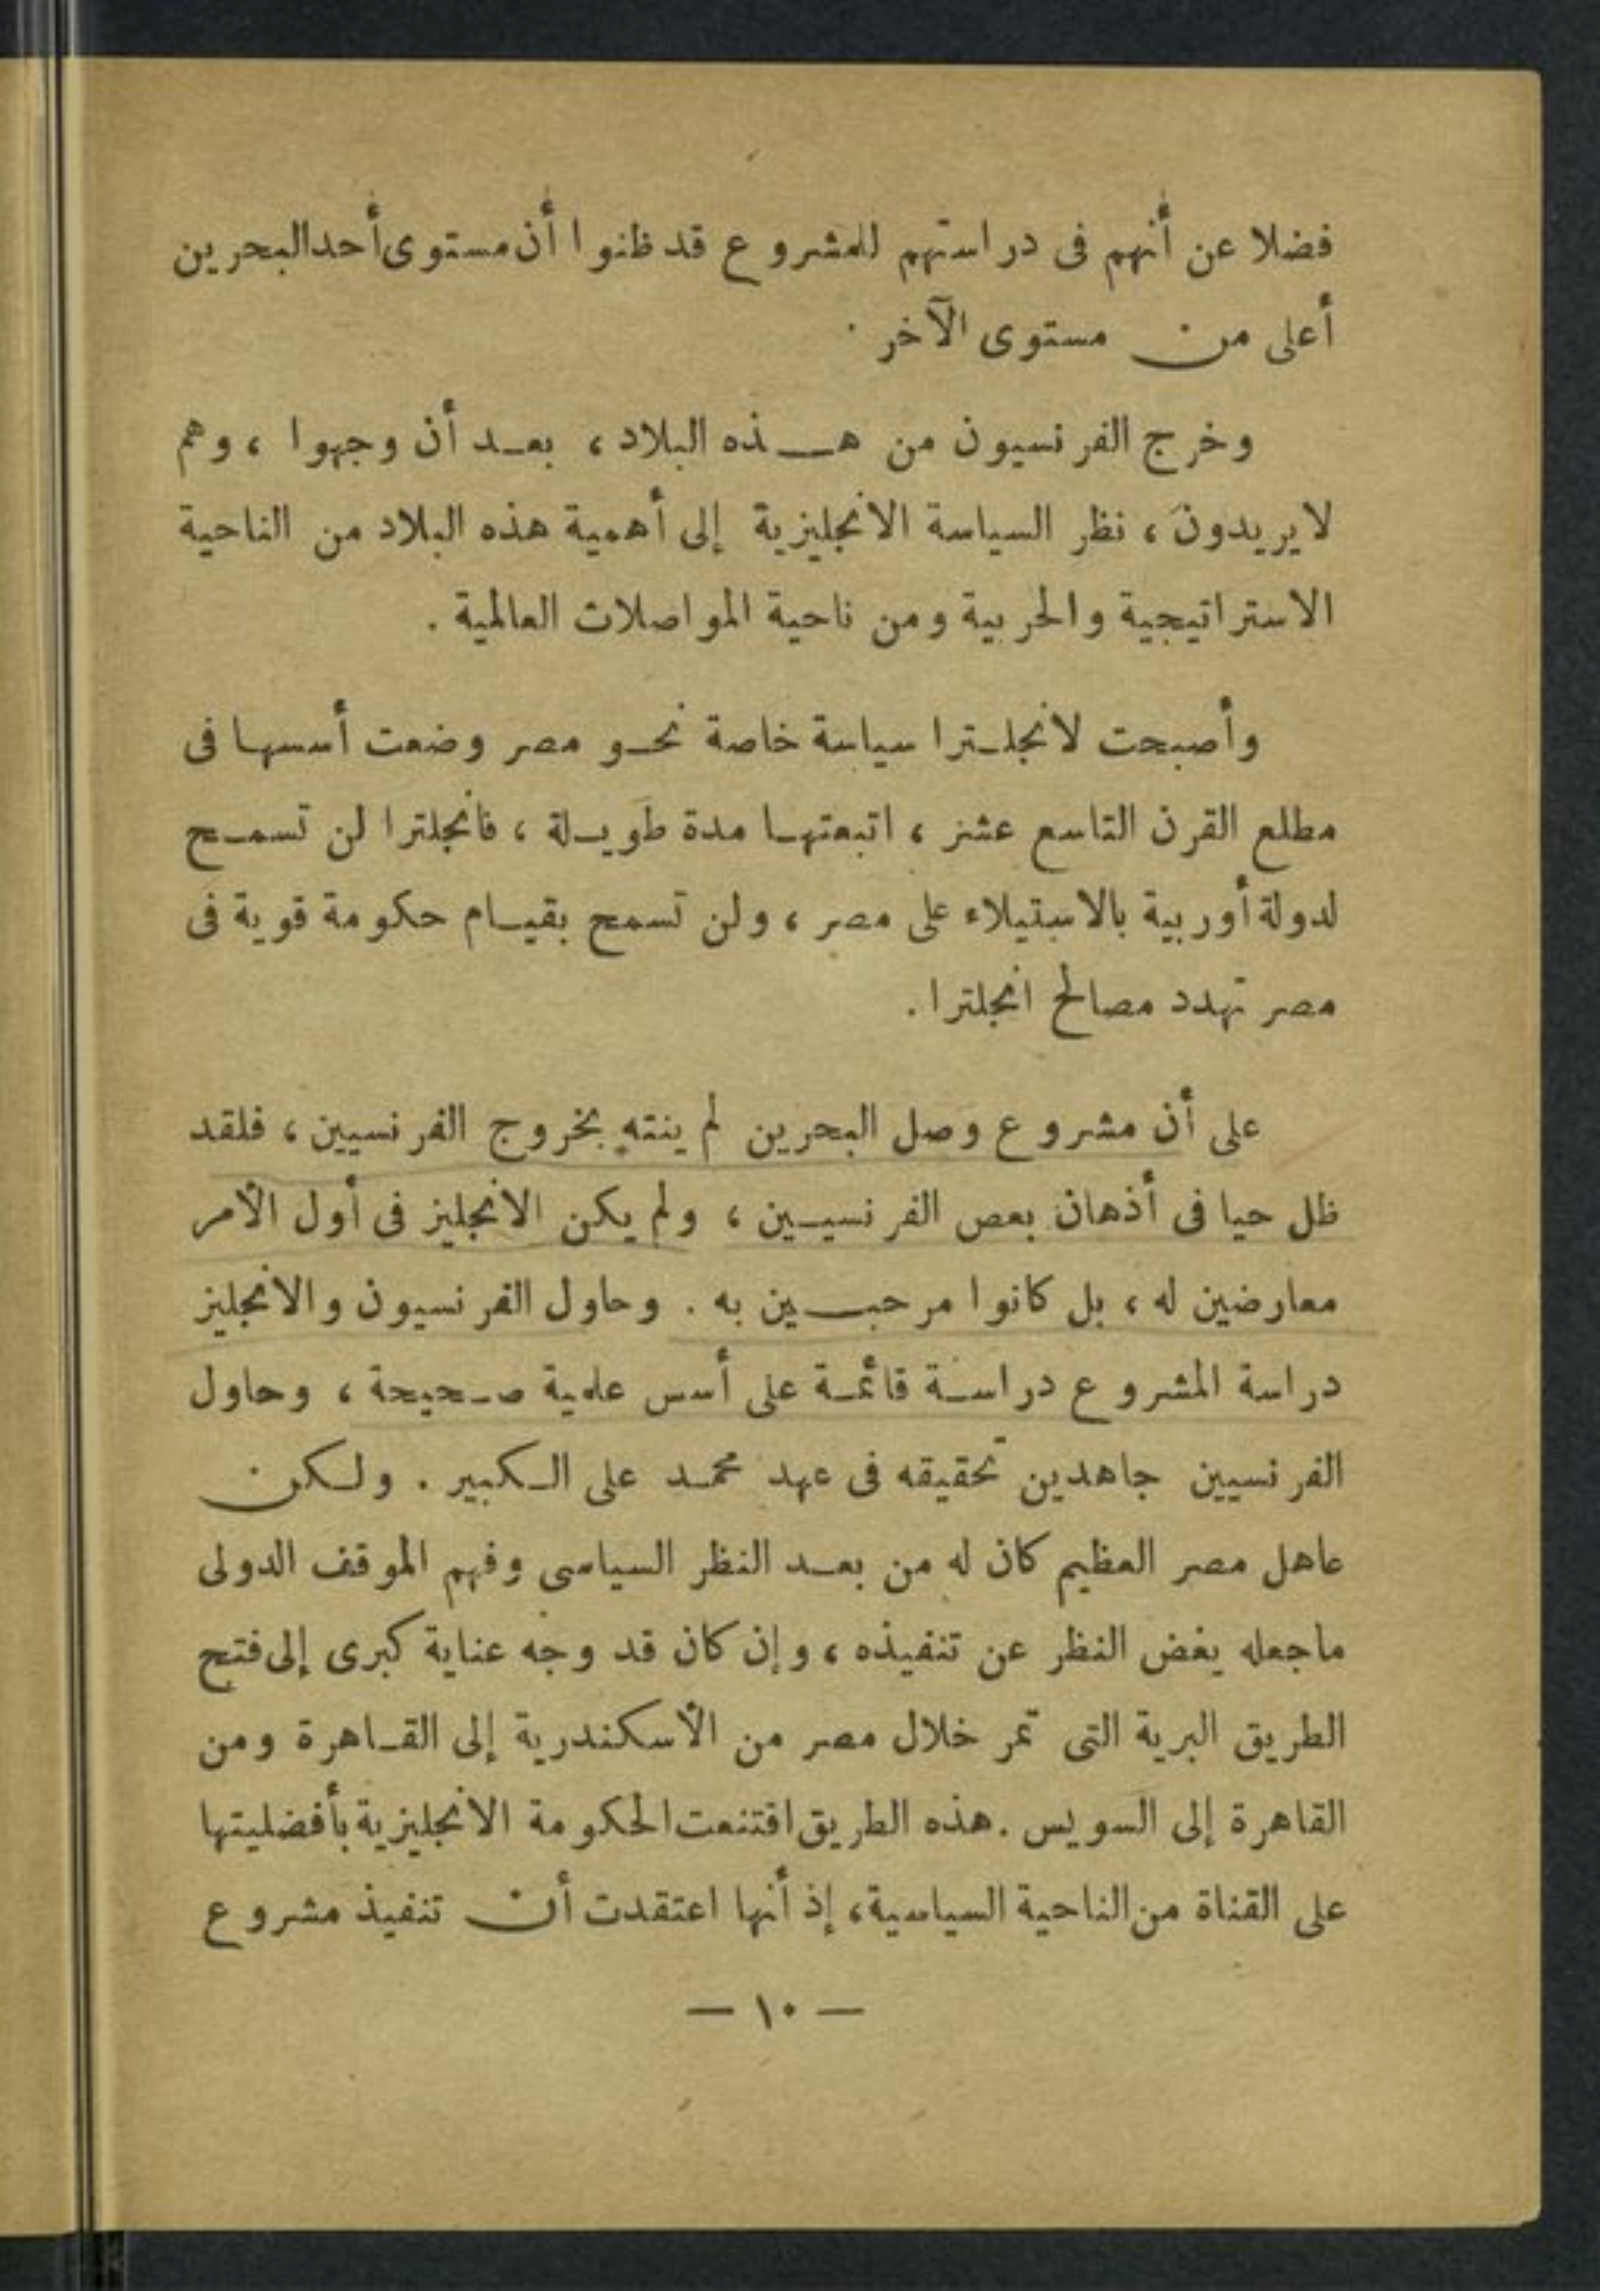 فضلا عن أنهم فى دراستهم للمشروع قد ظنوا أن مستوى أحد البحرين
أعلى من مستوى الآخر .
وخرج الفرنسيون من هذه البلاد ، بعد أن وجهوا ، وهم
لا يريدون ، نظر السياسة الانجليزية إلى أهمية هذه البلاد من الناحية
الاستراتيجية والحربية ومن ناحية المواصلات العالمية .
وأصبحت لانجلترا سياسة خاصة نحو مصر وضعت أسسها فى
مطلع القرن التاسع عشر ، اتبعتها مدة طويلة ، فانجلترا لن تسمح
لدولة أوربية بالاستيلاء على مصر ، ولن تسمح بقيام حكومة قوية فى
مصر تهدد مصالح انجلترا .
على أن مشروع وصل البحرين لم ينته بخروج الفرنسيين ، فلقد
ظل حيا فى أذهان بعص الفرنسيين ، ولم يكن الانجليز فى أول الأمر
معارضين له ، بل كانوا مرحبين به . وحاول الفرنسيون والانجليز
دراسة المشروع دراسة قائمة على أسس علمية صحيحة ، وحاول
الفرنسيين جاهدين تحقيقه فى عهد محمد على الكبير . ولكن
عاهل مصر العظيم كان له من بعد النظر السياسى وفهم الموقف الدولى
ماجعله يغض النظر عن تنفيذه ، وإن كان قد وجه عناية كبرى إلى فتح
الطريق البرية التى تمر خلال مصر من الأسكندرية إلى القاهرة ومن
القاهرة إلى السويس . هذه الطريق اقتنعت الحكومة الانجليزية بأفضليتها
على القناة من الناحية السياسية ، إذ أنها اعتقدت أن تنفيذ مشروع
— ١٠ —